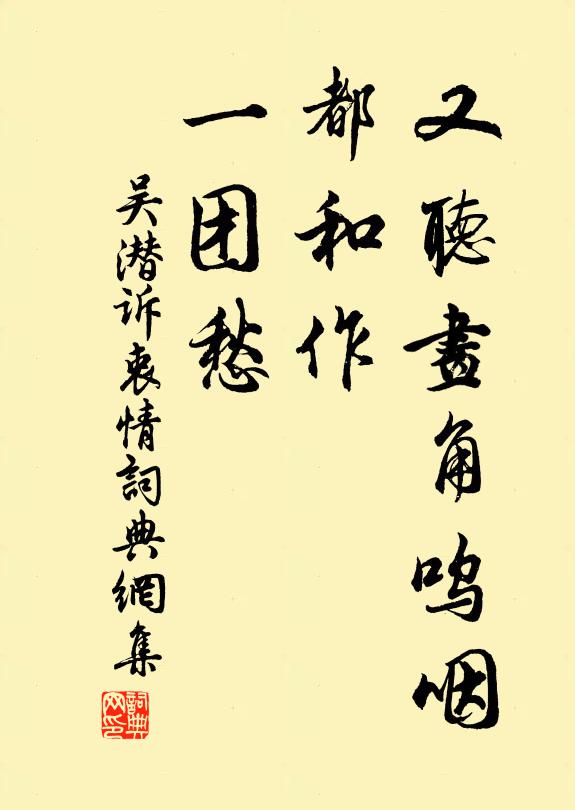 又聽畫角呜咽
都和作
一团愁
吴潜诉衷情詞典網集
詞典网印